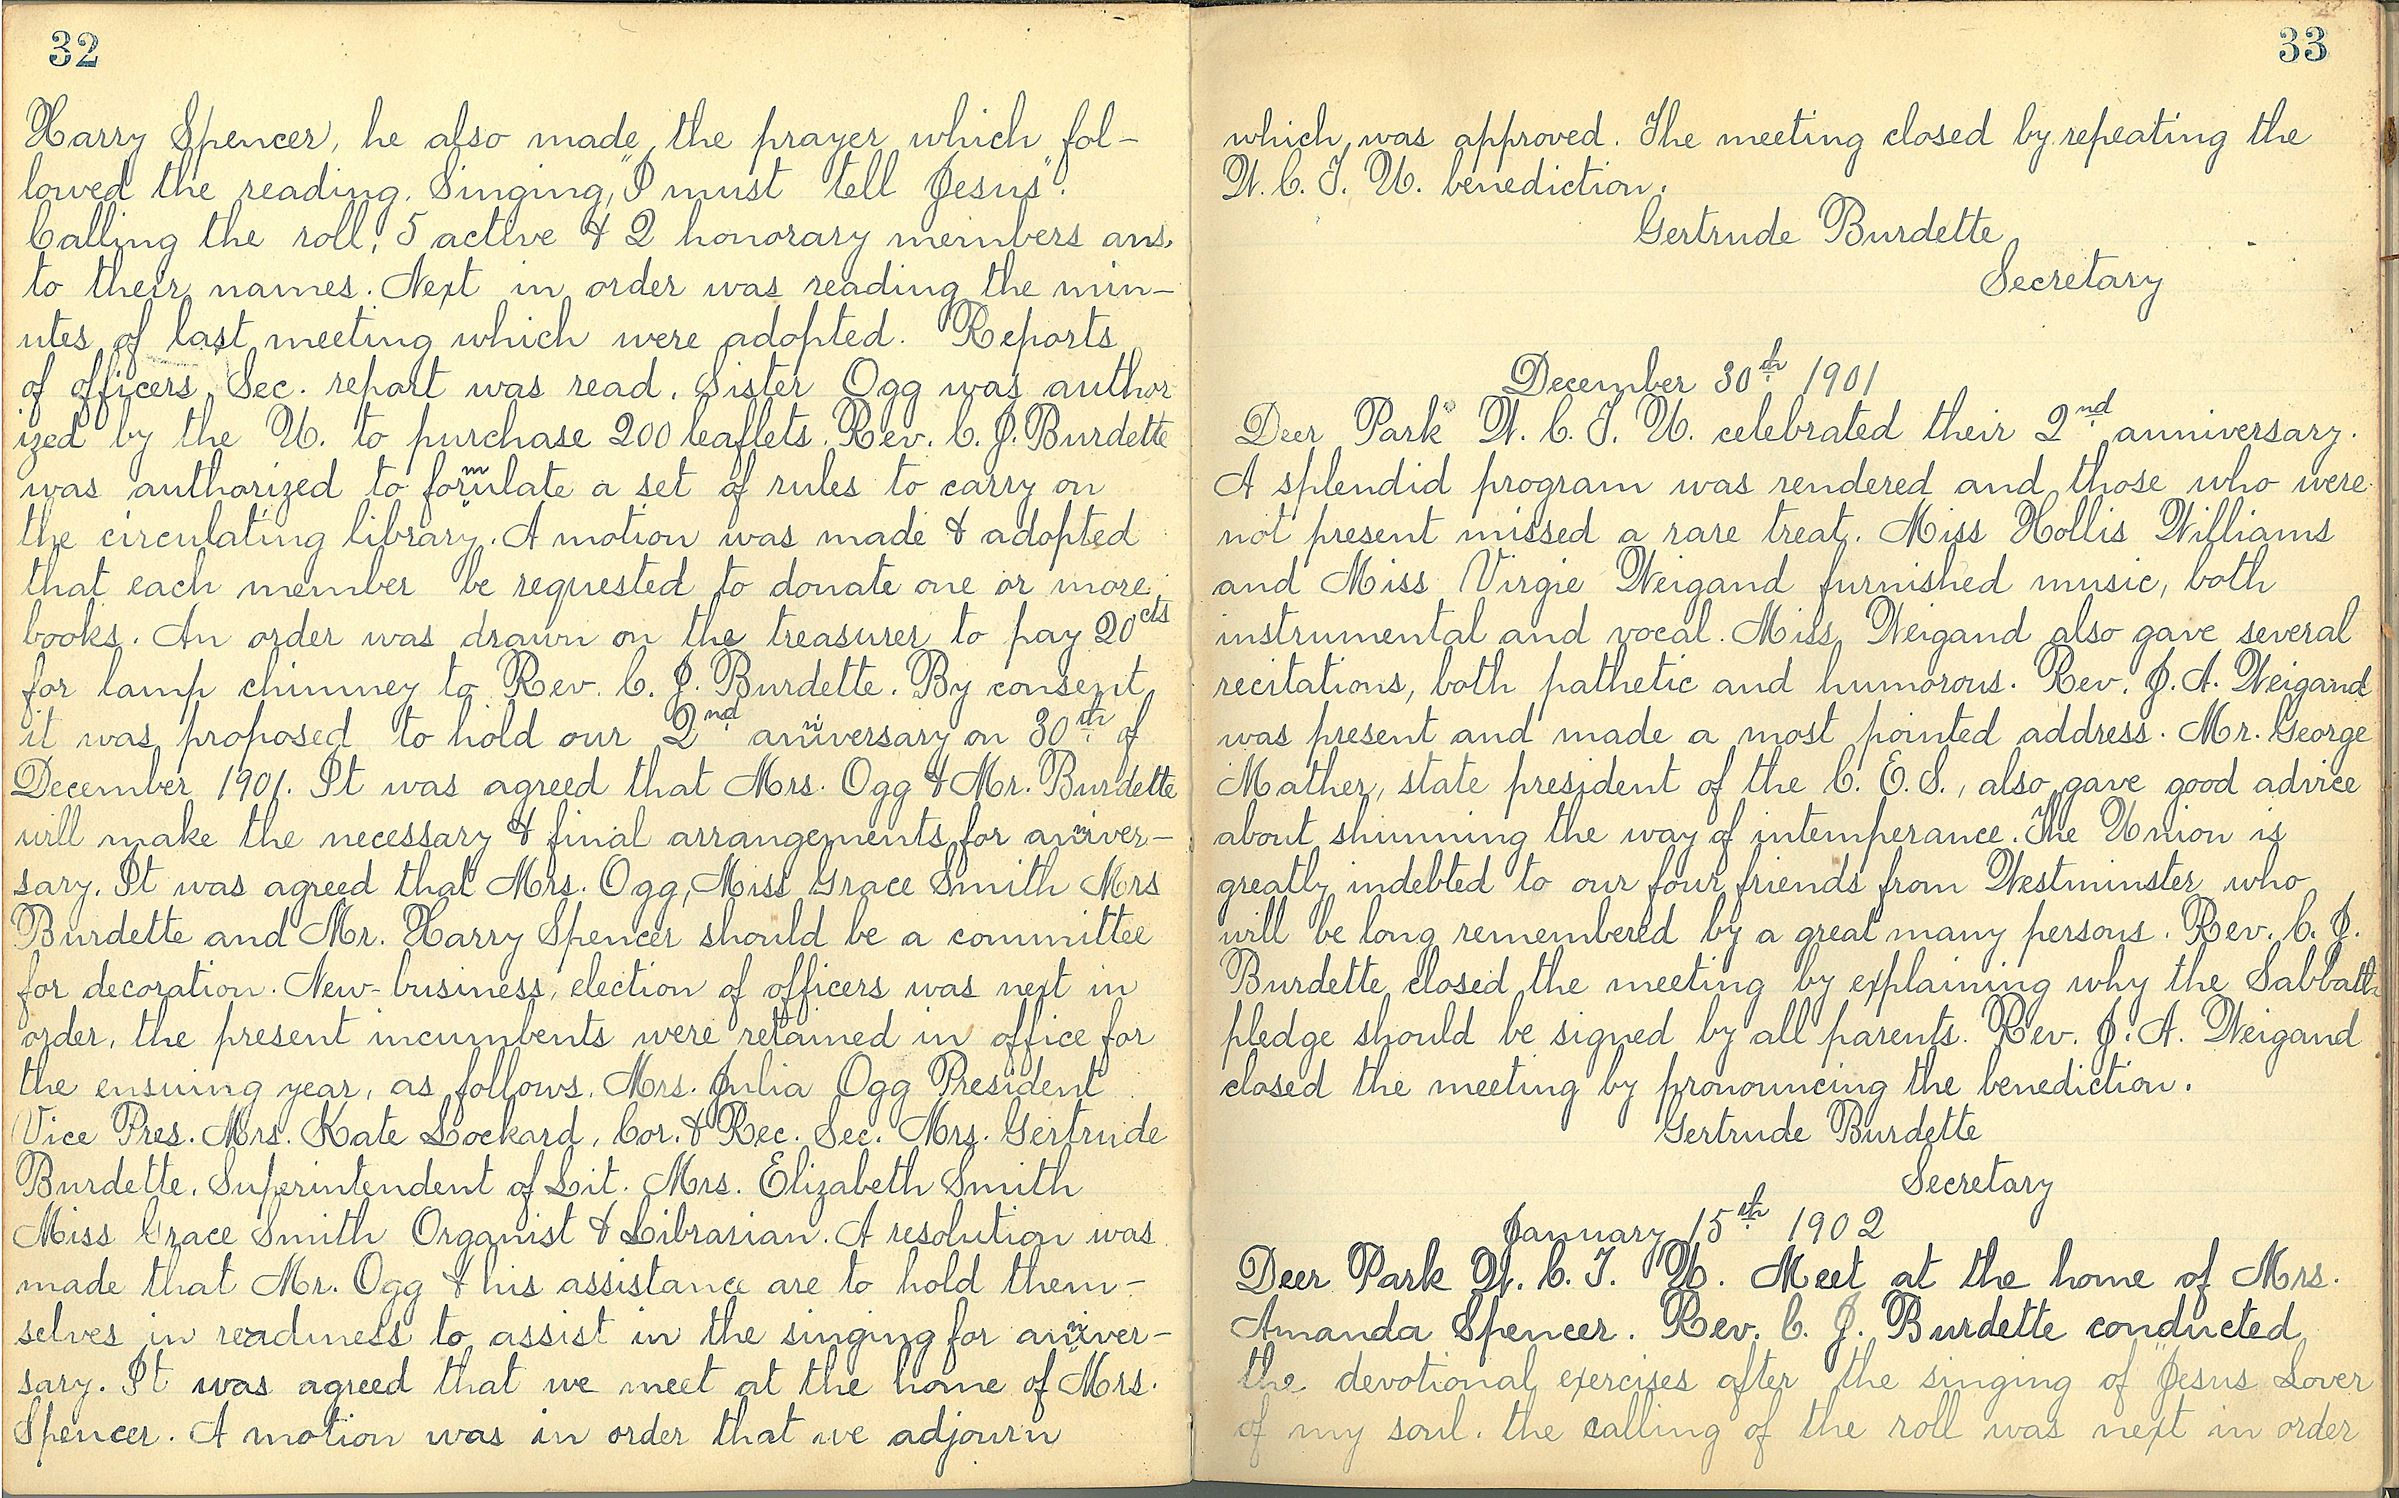 32
Harry Spencer, he also made the prayer which fol-
lowed the reading. Singing, "I must tell Jesus".
Calling the roll, 5 active & 2 honorary members ans.
to their names. Next in order was reading the min-
utes of last meeting which were adopted. Reports
of officers, Sec. report was read. Sister Ogg was author
ized by the U. to purchase 200 leaflets. Rev. C. J. Burdette
was authorized to formulate a set of rules to carry on
the circulating library. A motion was made & adopted
that each member be requested to donate one or more
books. An order was drawn on the treasurer to pay 20cts
for lamp chimney to Rev. C. J. Burdette. By consent
it was proposed to hold our 2nd anniversary on 30th of
December 1901. It was agreed that Mrs. Ogg & Mr. Burdette
will make the necessary & final arrangements for anniver-
sary. It was agreed that Mrs. Ogg, Miss Grace Smith Mrs
Burdette and Mr. Harry Spencer should be a committee
for decoration. New-business, election of officers was next in
order, the present incumbents were retained in office for
the ensuing year, as follows. Mrs. Julia Ogg President
Vice Pres. Mrs. Kate Lockard, Cor. & Rec. Sec. Mrs. Gertrude
Burdette. Superintendent of Lit. Mrs. Elizabeth Smith
Miss Grace Smith Organist & Librarian. A resolution was
made that Mr. Ogg & his assistance are to hold them-
selves in readiness to assist in the singing for anniver-
sary. It was agreed that we meet at the home of Mrs.
Spencer. A motion was in order that we adjourn
33
which was approved. The meeting closed by repeating the
W. C. T. U. benediction.
Gertrude Burdette
Secretary
December 30th 1901
Deer Park W. C. T. U. celebrated their 2nd anniversary.
A splendid program was rendered and those who were
not present missed a rare treat. Miss Hollis Williams
and Miss Virgie Weigand furnished music, both
instrumental and vocal. Miss Weigand also gave several
recitations, both pathetic and humorous. Rev. J. A. Weigand
was present and made a most pointed address. Mr. George
Mather, state president of the C. E. S., also gave good advice
about shunning the way of intemperance. The Union is
greatly indebted to our four friends from Westminster who
will be long remembered by a great many persons. Rev. C. J.
Burdette closed the meeting by explaining why the Sabbath
pledge should be signed by all parents. Rev. J. A. Weigand
closed the meeting by pronouncing the benediction.
Gertrude Burdette
Secretary
January 15th 1902
Deer Park W. C. T. U. Meet at the home of Mrs.
Amanda Spencer. Rev. C. J. Burdette conducted
the devotional exercises after the singing of "Jesus Lover
of my soul. the calling of the roll was next in order